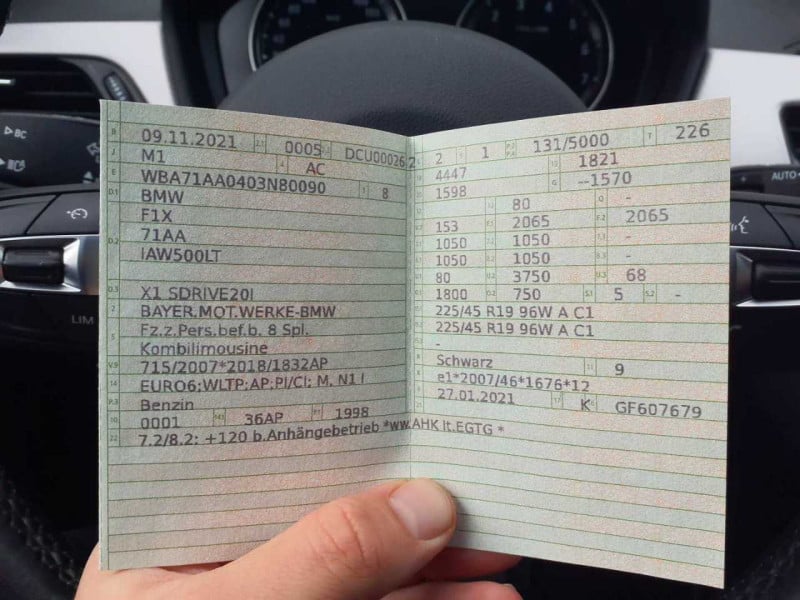 B 09.11.2021 2.1 0005 DCU00026 2
J M1 4 AC
E WBA71AA0403N80090 3 8
D.1 BMW
F1X
D.2 71AA
IAW500LT
D.3 X1 SDRIVE20I
2 BAYER.MOT.WERKE-BMW
5 Fz.z.Pers.bef.b. 8 Spl.
Kombilimousine
V.9 715/2007*2018/1832AP
14 EURO6;WLTP;AP;PI/CI; M, N1 I
P.3 Benzin
10 0001 14.1 36AP P.1 1998
22 7.2/8.2: +120 b.Anhängebetrieb *ww.AHK lt.EGTG *
2 1 131/5000 T 226
4447 1821
1598 G --1570
80 Q -
153 2065 F.2 2065
1050 1050 -
1050 1050 -
80 3750 U.3 68
1800 O.2 750 S.1 5 S.2 -
225/45 R19 96W A C1
225/45 R19 96W A C1
-
R Schwarz 11 9
K e1*2007/46*1676*12
6 27.01.2021 17 K 16 GF607679
LIM
BC
AUTO